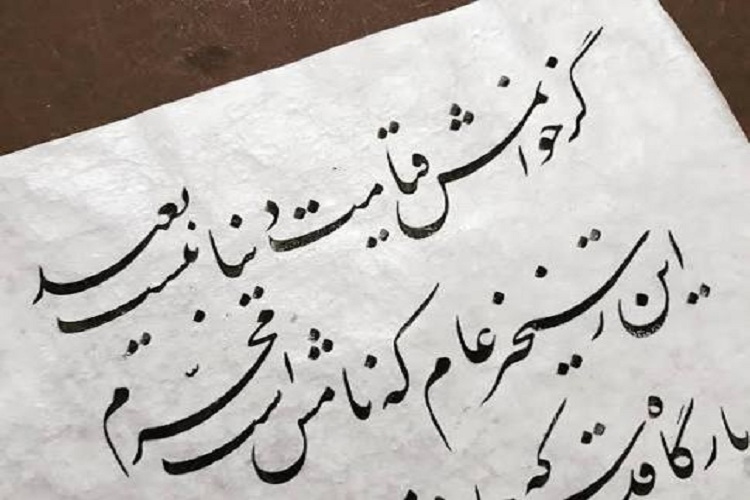 گر خوانمش قیامت دنیا بعید نیست
این رستخیز عام که نامش محرّم است
بارگاه قدس که